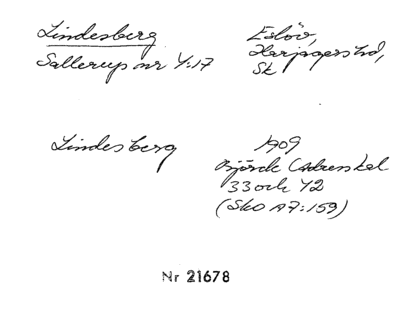 Lindesberg
Sallerup nr 4:17
Eslöv,
Harjagers hd,
Sk
Lindesberg
1909
Björck
33 och 42
(SkO A7:159)
Nr 21678